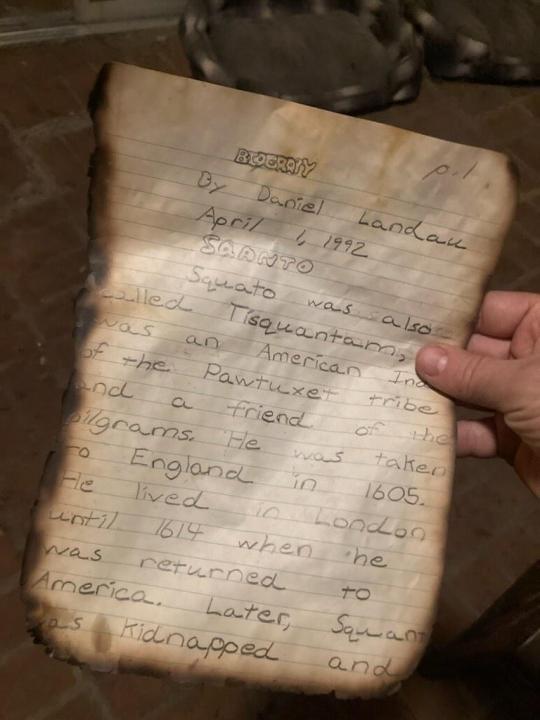 BIOGRAPY p.1
By Daniel Landau
April 1, 1992
SQANTO
Squato was also
called Tisquantam,
was an American Ind
of the Pawtuxet tribe
and a friend of the
pilgrams. He was taken
to England in 1605.
He lived in London
until 1614 when he
was returned to
America. Later, Squant
as kidnapped and